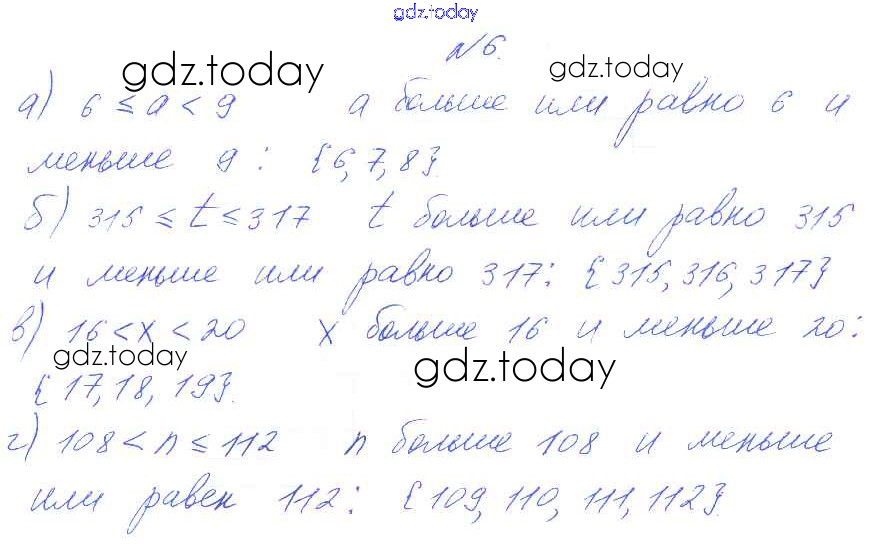 gdz.today
№6.
gdz.today gdz.today
а) 6 ≤ a < 9 a больше или равно 6 и
меньше 9: {6, 7, 8}.
б) 315 ≤ t ≤ 317 t больше или равно 315
и меньше или равно 317: {315, 316, 317}
в) 16 < x < 20 x больше 16 и меньше 20:
gdz.today gdz.today
{17, 18, 19}.
г) 108 < n ≤ 112 n больше 108 и меньше
или равен 112: {109, 110, 111, 112}.